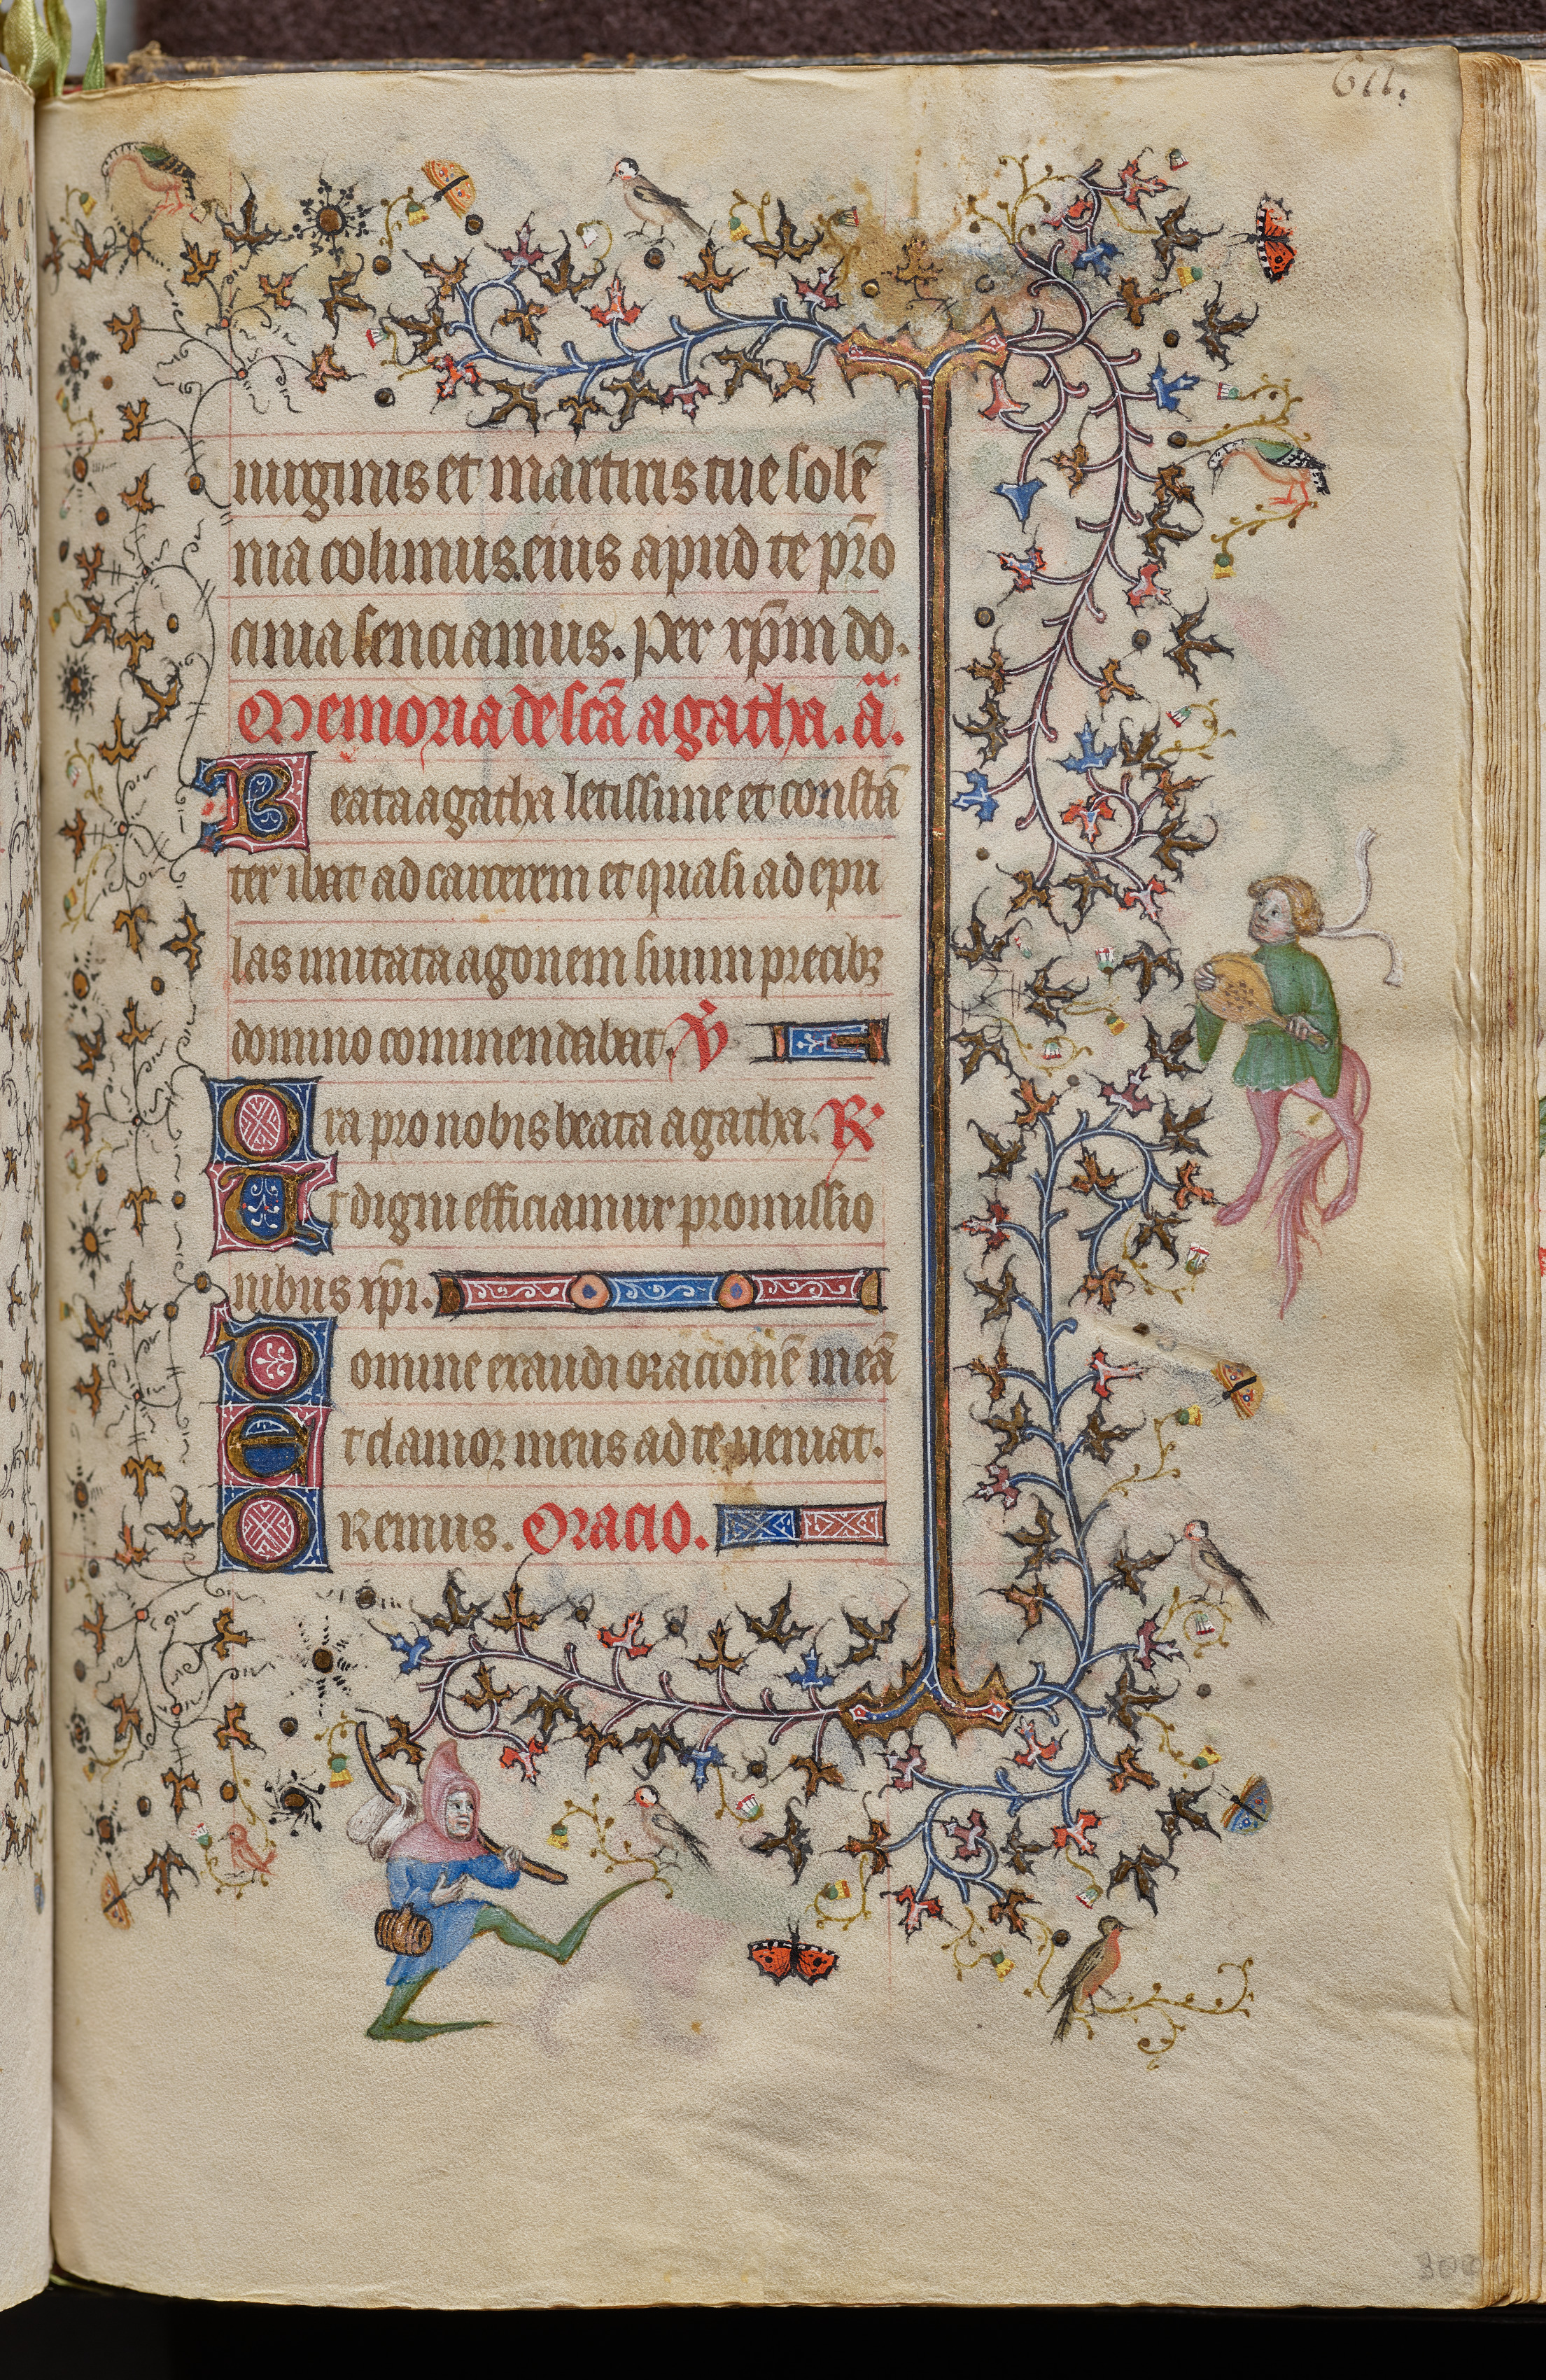 uirginis et martiris tue solē
nia colimus. eius apud te p̄ro
cinia senciamus. per xp̄m do.
Memoria de scā agatha. ā.
Beata agatha letissime et constā
ter ibat ad carcerem et quasi ad epu
las inuitata agonem suum precibꝫ
domino commendabat. V̄
Ora pro nobis beata agatha. R.
Ut digni efficiamur promissio
nibus xp̄i.
Domine exaudi oracionē meā
Et clamor meus ad te ueniat.
Oremus. Oracio.